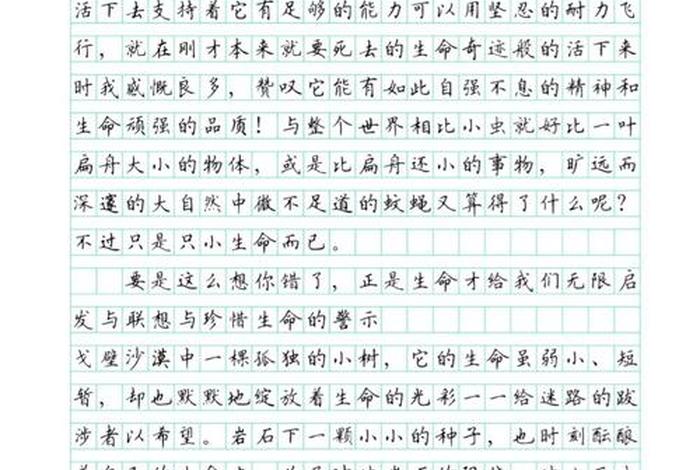 活下去支持着它有足够的能力可以用坚忍的耐力飞
行，就在刚才本来就要死去的生命奇迹般的活下来
时我感慨良多，赞叹它能有如此自强不息的精神和
生命顽强的品质！与整个世界相比小虫就好比一叶
扁舟大小的物体，或是比扁舟还小的事物，旷远而
深邃的大自然中微不足道的蚊蝇又算得了什么呢？
不过只是只小生命而已。
要是这么想你错了，正是生命才给我们无限启
发与联想与珍惜生命的警示
戈壁沙漠中一棵孤独的小树，它的生命虽弱小、短
暂，却也默默地绽放着生命的光彩一一给迷路的跋
涉者以希望。岩石下一颗小小的种子，也时刻酝酿